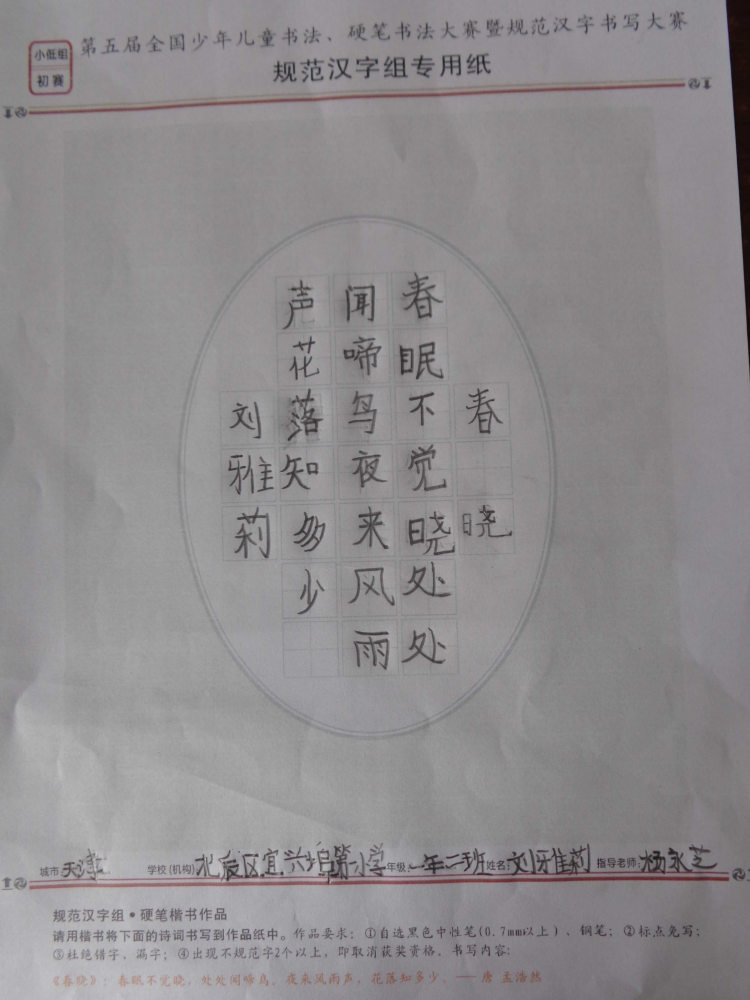 小低组
初赛
第五届全国少年儿童书法、硬笔书法大赛暨规范汉字书写大赛
规范汉字组专用纸
春晓
春眠不觉晓处处
闻啼鸟夜来风雨
声花落知多少
刘雅莉
城市:天津 学校(机构)北辰区宜兴埠第一小学 年级:一年二班 姓名:刘雅莉 指导老师:杨永芝
规范汉字组·硬笔楷书作品
请用楷书将下面的诗词书写到作品纸中。作品要求:①自选黑色中性笔(0.7mm以上)、钢笔;②标点免写;
③杜绝错字,漏字;④出现不规范字2个以上,即取消获奖资格。书写内容:
《春晓》:春眠不觉晓,处处闻啼鸟。夜来风雨声,花落知多少。——唐 孟浩然